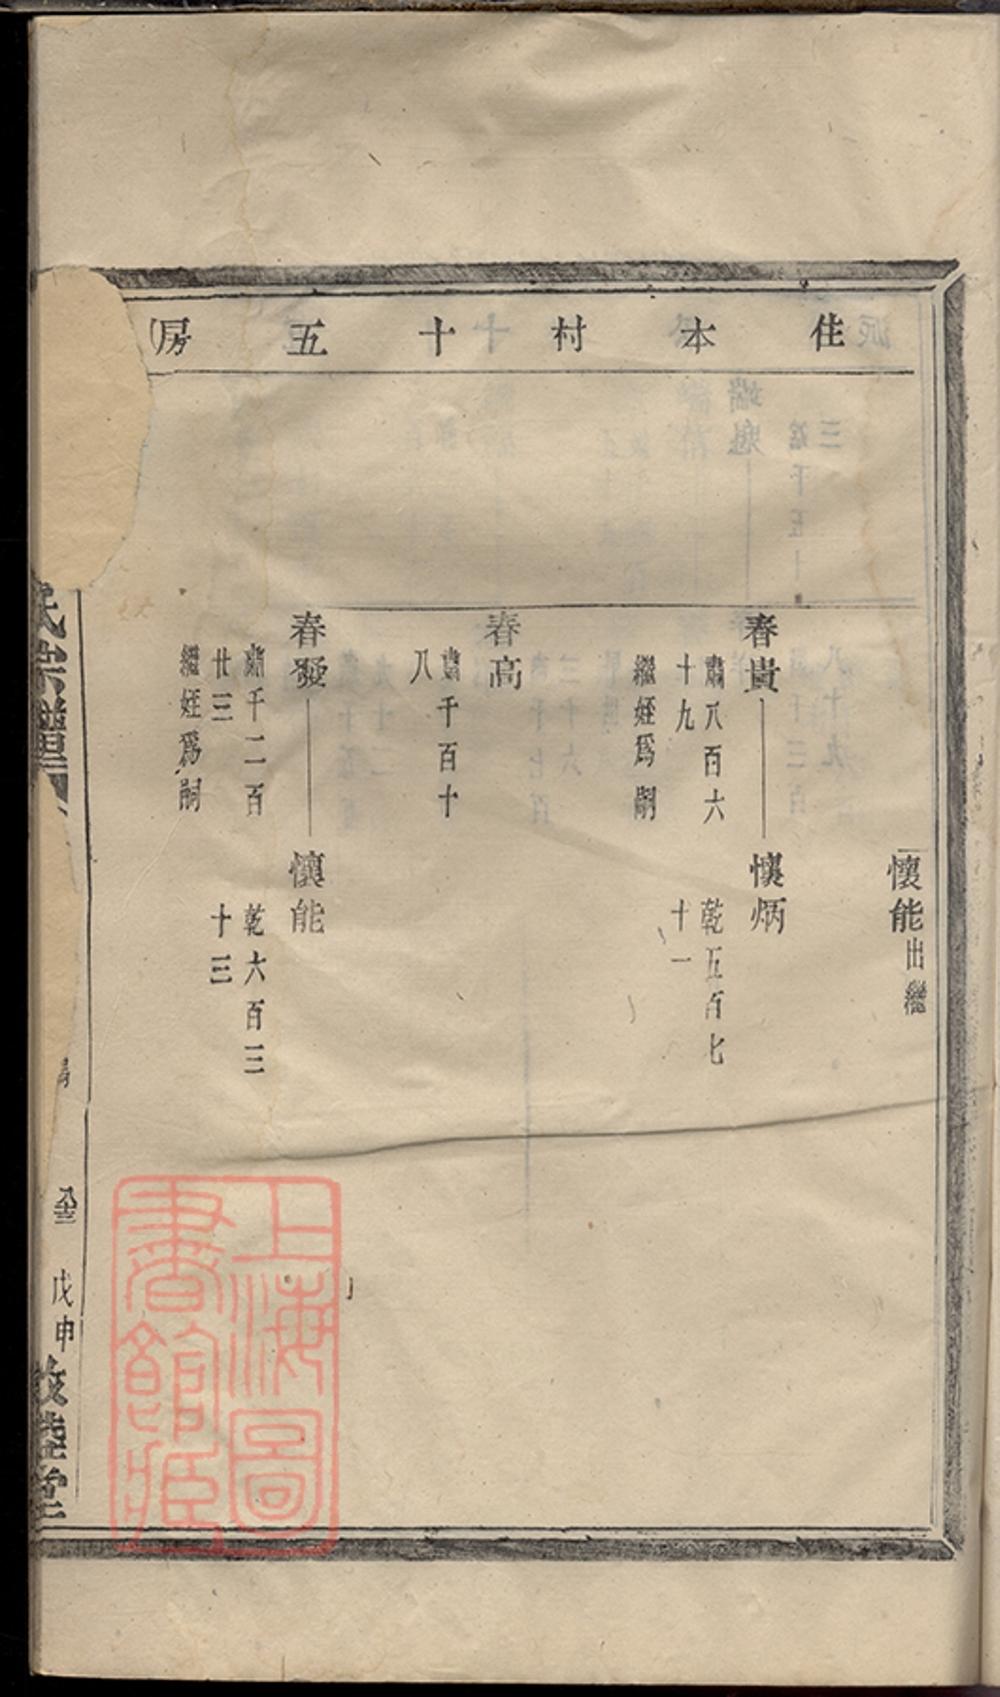 住本村十五房
懷能出繼
春貴
肅八百六
十九
繼姪爲嗣
懷炳
乾五百七
十一
春高
肅千百十
八
春發
肅千二百
廿三
繼姪爲嗣
懷能
乾六百三
十三
氏宗譜
戊申
敦睦堂
上海圖
書館藏